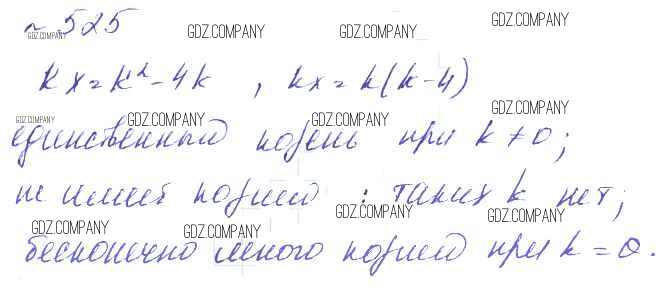 №525
kx = k² - 4k , kx = k(k-4)
единственный корень при k ≠ 0;
не имеет корней : таких k нет;
бесконечно много корней при k = 0.
GDZ.COMPANY GDZ.COMPANY GDZ.COMPANY GDZ.COMPANY
GDZ.COMPANY GDZ.COMPANY GDZ.COMPANY GDZ.COMPANY
GDZ.COMPANY GDZ.COMPANY GDZ.COMPANY GDZ.COMPANY